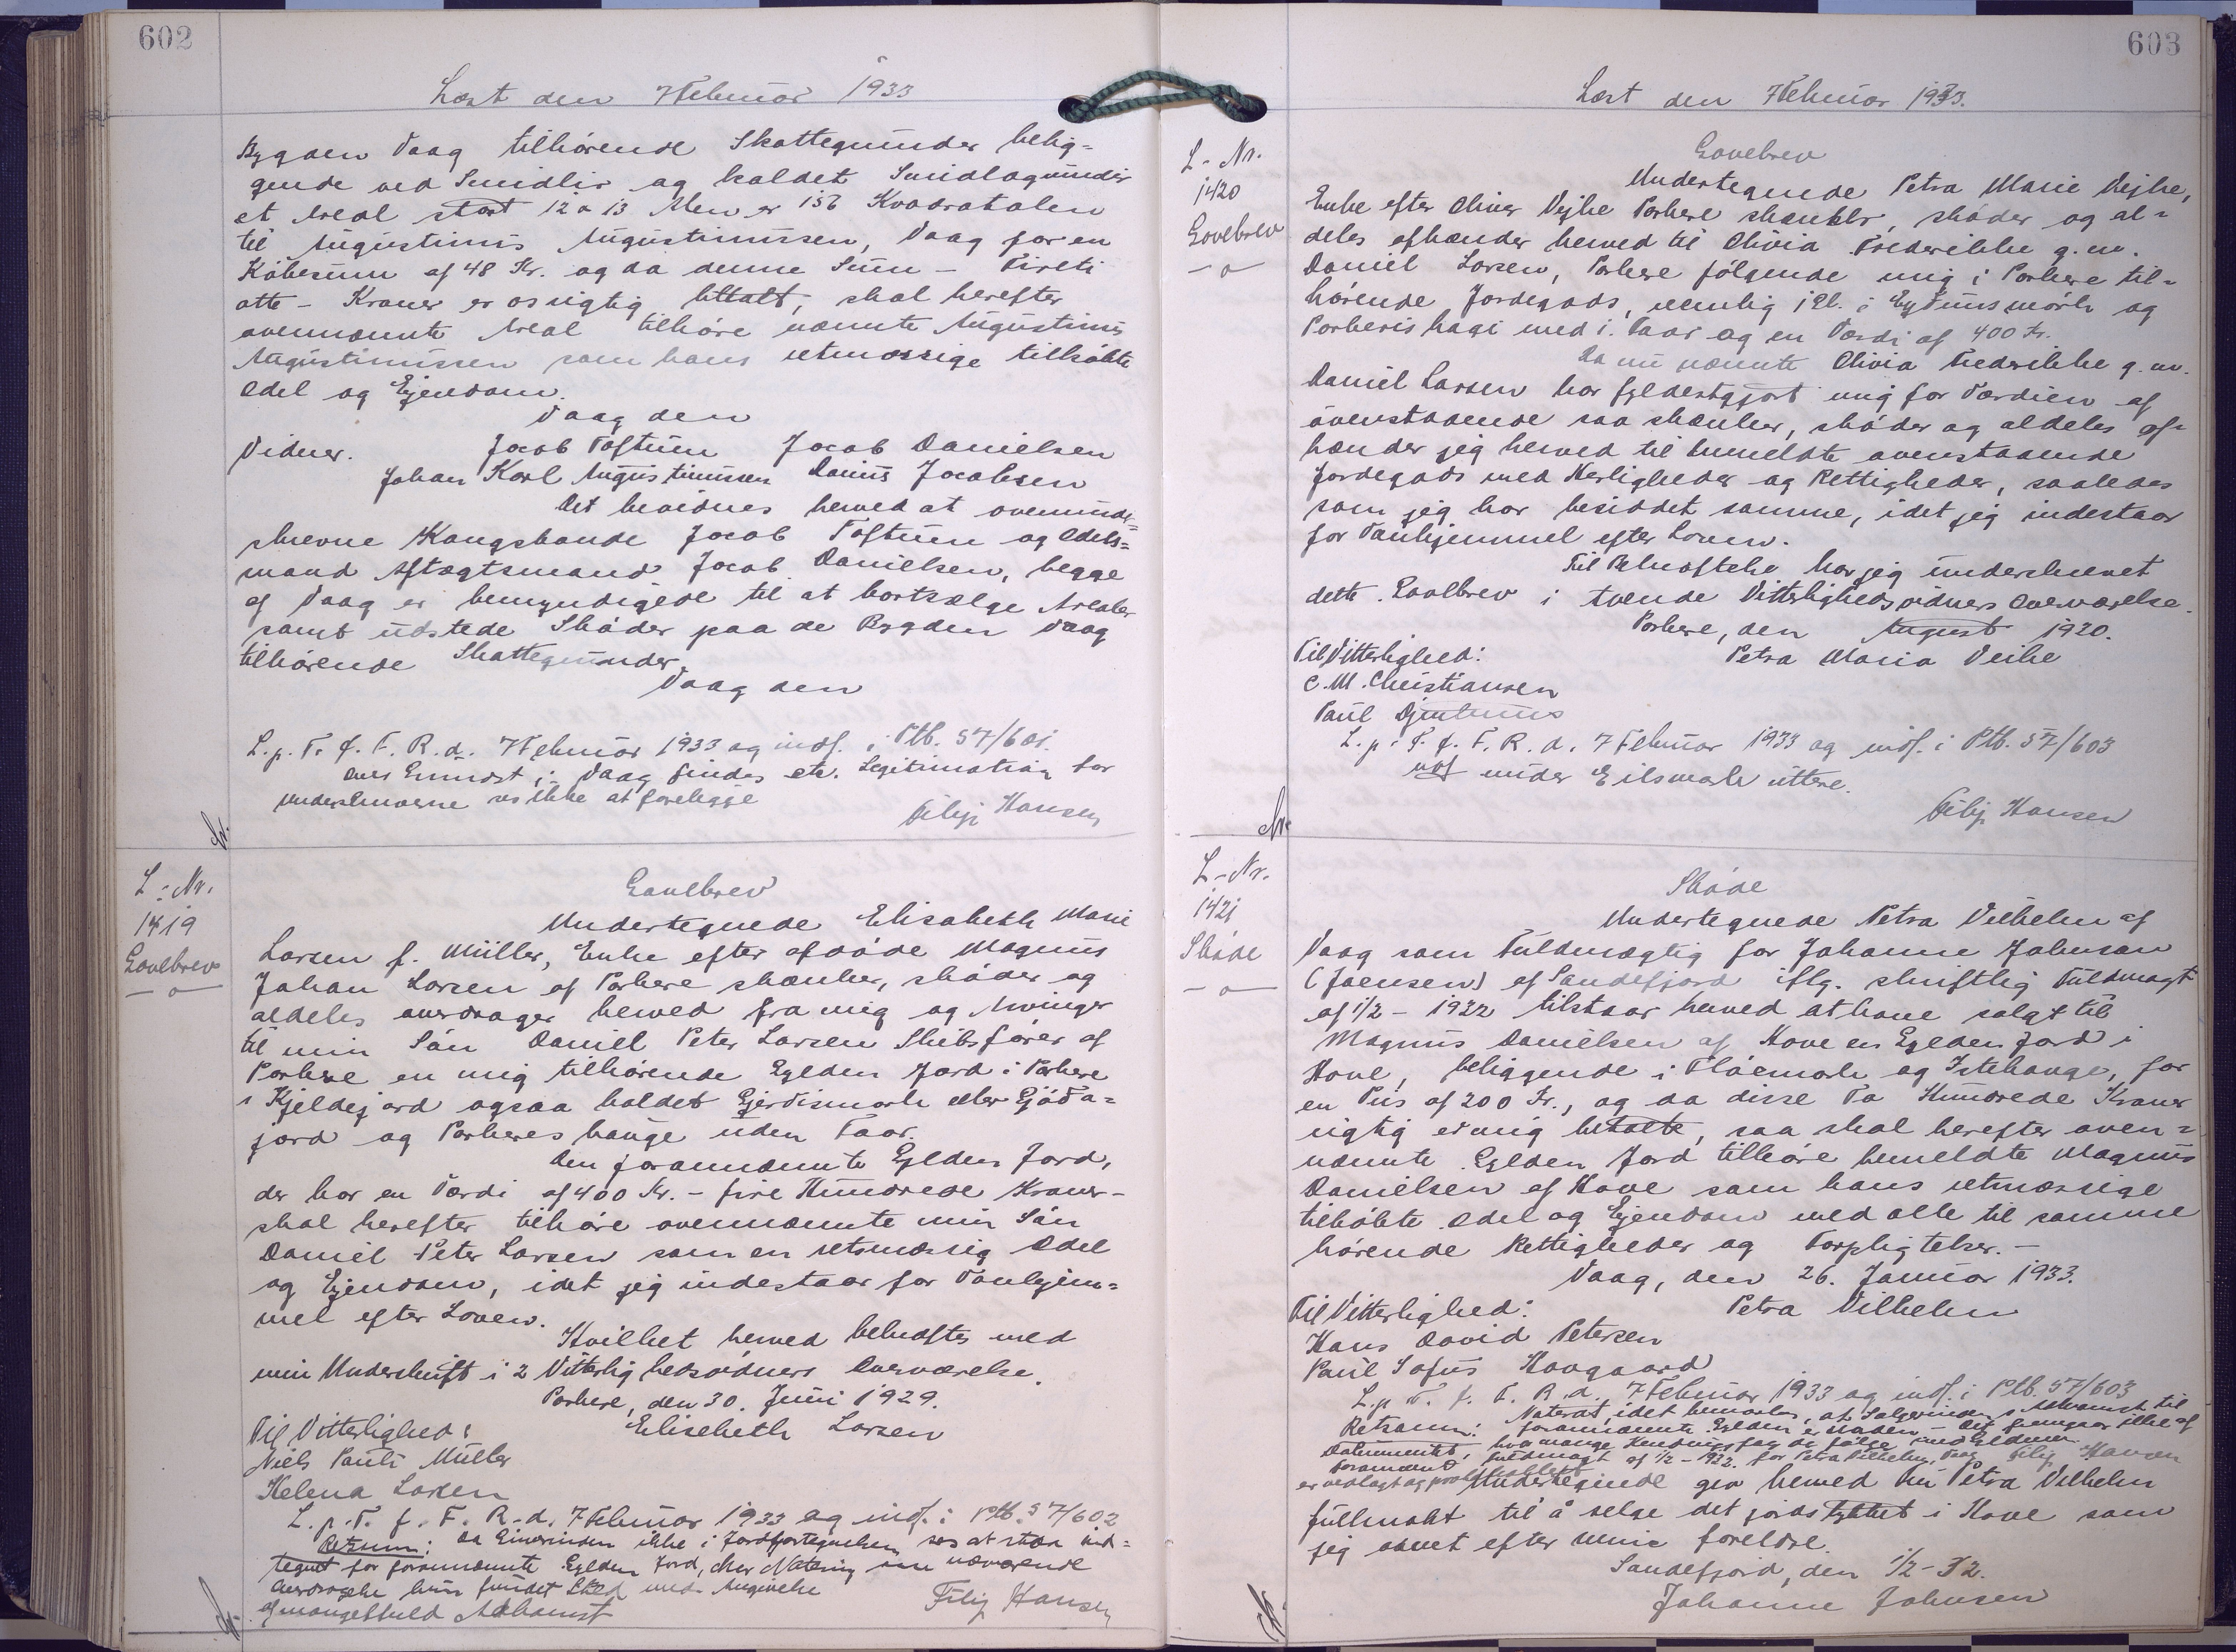 602
Læst den 7 Februar 1933
Bygden Vaag tilhörende Skattegrunder belig-
gende ved Smidlir og kaldet Smidlagrundir
et Areal stort 12 a 13 Alen er 156 Kvadratalen
til Augustinus Augustinussen, Vaag for en
Köbesum af 48 Kr. og da denne Sum - Fireti
otte - Kroner er os rigtig betalt, skal herefter
ovennævnte Areal tilhöre nævnte Augustinus
Augustinussen som hans retmæssige tilköbte
Odel og Ejendom.
Vaag den
Vidner. Jacob Toftum Jacob Danielsen
Johan Karl Augustinussen Danius Jacobsen
Det bevidnes herved at ovenunder-
skrevne Kongsbonde Jacob Toftum og Odels-
mand Aftægtsmand Jacob Danielsen, begge
af Vaag er bemyndigede til at bortsælge Arealer
samt udstede Skøder paa de Bygden Vaag
tilhörende Skattegrunder.
Vaag den
L. p. T. f. F. R. d. 7 Februar 1933 og indf. i Ptb. 57/601.
Anm Grundst i Vaag findes etc. Legitimation for
underskriverne ses ikke at foreligge
Filip Hansen
L-Nr.
1419
Gavebrev
Gavebrev
Undertegnede Elisabeth Marie
Larsen f. Müller, Enke efter afdöde Magnus
Johan Larsen af Porkere skænker, sköder og
aldeles overdrager herved fra mig og Arvinger
til min Sön Daniel Peter Larsen Skibsförer af
Porkere en mig tilhörende Gylden Jord i Porkere
i Kjeldejord ogsaa kaldet Gjerdismark eller Gjöda-
jord og Porkeres hauge uden Faar.
Den forannævnte Gylden Jord,
der har en Værdi af 400 Kr. - fire Hundrede Kroner -
skal herefter tilhöre ovennævnte min Sön
Daniel Peter Larsen som en retsmæssig Odel
og Ejendom, idet jeg indestaar for Vanhjem-
mel efter Loven.
Hvilket herved bekræftes med
min Underskrift i 2 Vitterlighedsvidners Overværelse.
Porkere, den 30. Juni 1929.
Til Vitterlighed: Elisebeth Larsen
Niels Pauli Müller
Helena Larsen
L. p. T. f. F. R. d. 7 Februar 1933 og indf. i Ptb. 57/602
Retsanm: Da Giverinden ikke i Jordfortegnelsen ses at staa ind-
tegnet for forannævnte Gylden Jord, Notering nærværende
Overdragelse kun fundet Sted under Angivelse
af mangelfuld Adkomst Filip Hansen
603
Læst den 7 Februar 1933.
L-Nr.
1420
Gavebrev
Gavebrev
Undertegnede Petra Marie Vejhe,
Enke efter Oliver Vejhe Porkere skænker, skøder og al-
deles afhænder herved til Olivia Frederikke g. m.
Daniel Larsen, Porkere fölgende mig i Porkere til-
hörende Jordegods, nemlig 1 Gl. i Eydunsmörk og
Porkerishagi med 1. Faar og en Værdi af 400 Kr.
Da nu nævnte Olivia Frederikke g. m.
Daniel Larsen har fyldestgjort mig for Værdien af
ovenstaaende saa skænker, sköder og aldeles af-
hænder jeg herved til bemeldte ovenstaaende
Jordegods med Herligheder og Rettigheder, saaledes
som jeg har besiddet samme, idet jeg indestaar
for Vanhjemmel efter Loven.
Til Bekræftelse har jeg underskrevet
dette Gavebrev i tvende Vitterlighedsvidners Overværelse.
Porkere, den August 1920.
Til Vitterlighed: Petra Maria Veihe
C. M. Christiansen
Paul
L. p. T. f. F. R. d. 7 Februar 1933 og indf. i Ptb. 57/603
under Eilsmark uttere.
Filip Hansen
L-Nr.
1421
Sköde
Sköde
Undertegnede Petra Vilhelm af
Vaag som Fuldmægtig for Johanne Johnsen
(Joensen) af Sandefjord iflg. skriftlig Fuldmagt
af 1/2 - 1932 tilstaar herved at have solgt til
Magnus Danielsen af Hove en Gylden Jord i
Hove, beliggende i Flóemark og Istehauge, for
en Pris af 200 Kr., og da disse To Hundrede Kroner
rigtig er mig betalte, saa skal herefter oven-
nævnte Gylden Jord tilhöre bemeldte Magnus
Danielsen af Hove som hans retmæssige
tilköbte Odel og Ejendom med alle til samme
hörende Rettigheder og Forpligtelser. -
Vaag, den 26. Januar 1933.
Til Vitterlighed: Petra Vilhelm
Hans David Petersen
Paul Sofus Hovgaard
L. p. T. f. F. R. d. 7 Februar 1933 og indf. i Ptb. 57/603
Retsanm: Noteret, idet bemærkes, at Sælgerindens Adkomst til
forannævnte Gylden er - Det fremgaar ikke af
Dokumentet, hvor mange der fölge med Gyldenen.
Forannævnt Fuldmagt af 1/2 - 1932 for Petra Vilhelm, Vaag Filip Hansen
er vedlagt og protokolleret
Undertegnede gir herved fru Petra Vilhelm
fullmakt til å selge det jordstykket i Hove som
jeg arvet efter mine foreldre.
Sandefjord, den 1/2 - 32.
Johanne Johnsen